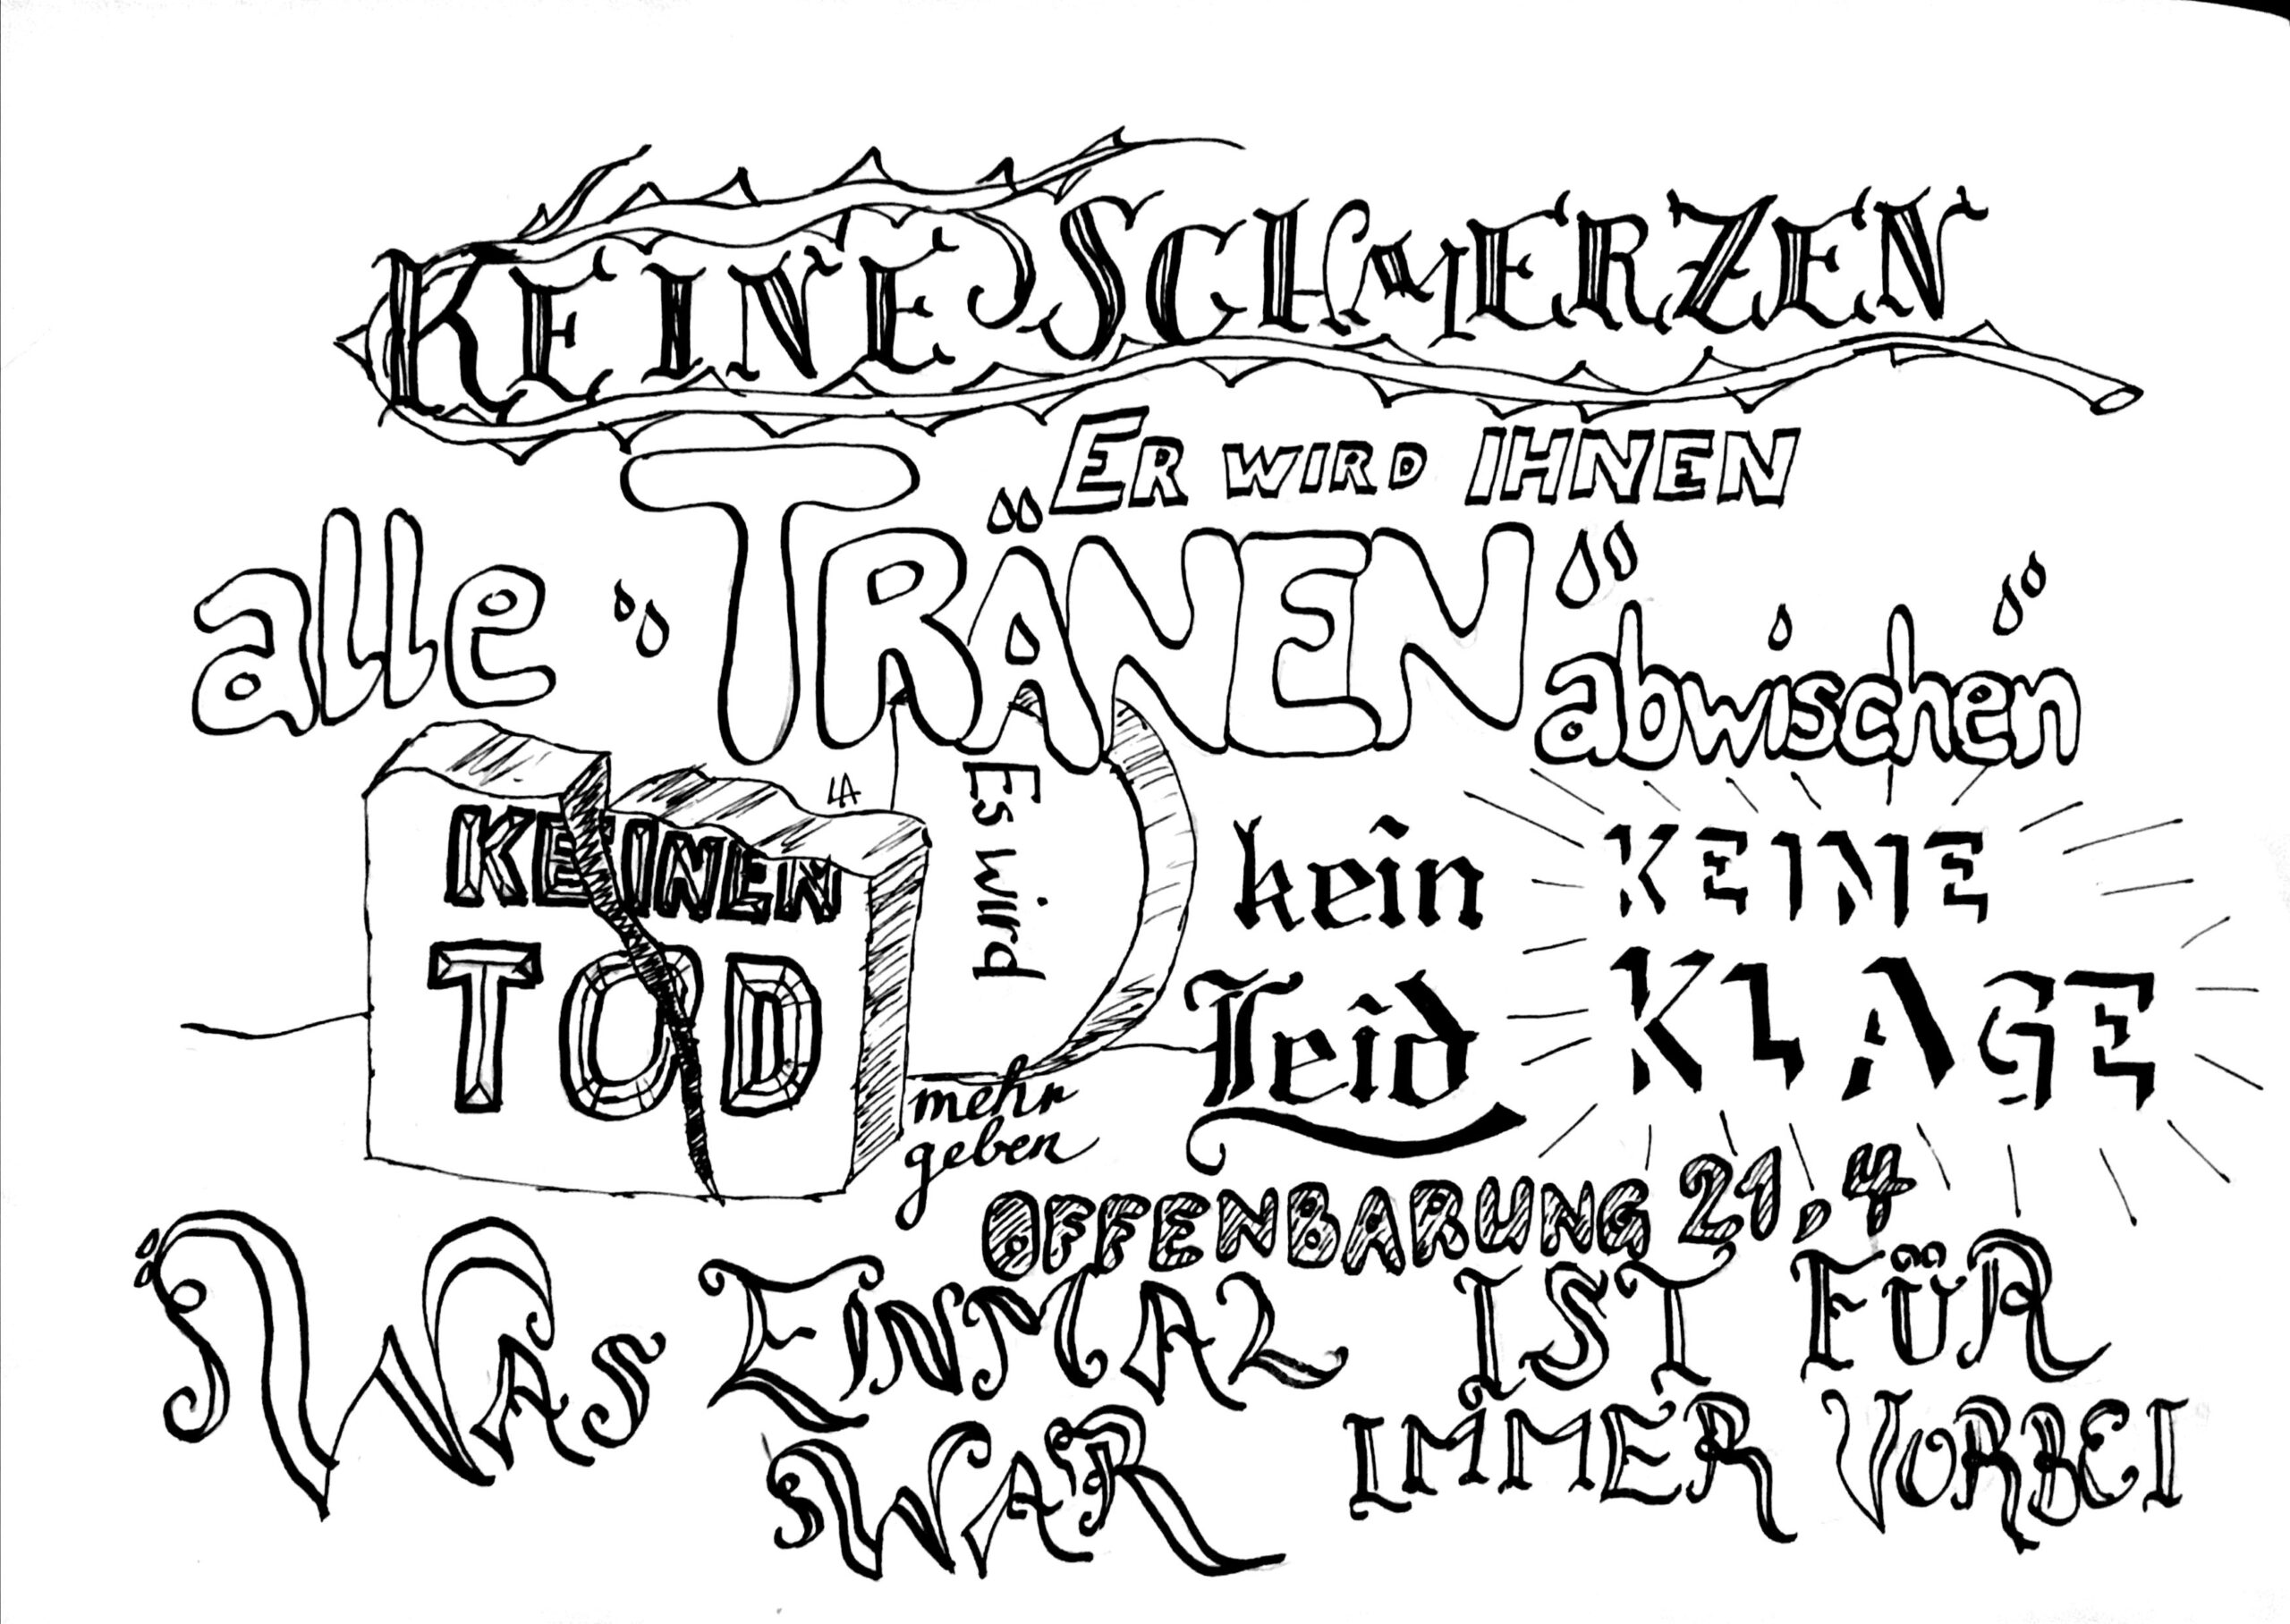 KEINE SCHMERZEN
ER WIRD IHNEN
alle TRÄNEN abwischen
LA
KEINEN
TOD
Es wird
mehr
geben
kein
Leid
KEINE
KLAGE
OFFENBARUNG 21,4
WAS EINMAL
WAR
IST FÜR
IMMER VORBEI